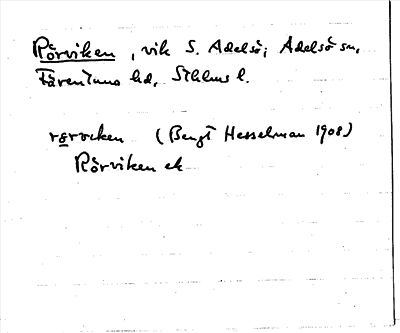 Rörviken, vik S. Adelsö; Adelsö sn,
Färentuna hd, Sthlms l.
rörviken (Bengt Hesselman 1908)
Rörviken ek